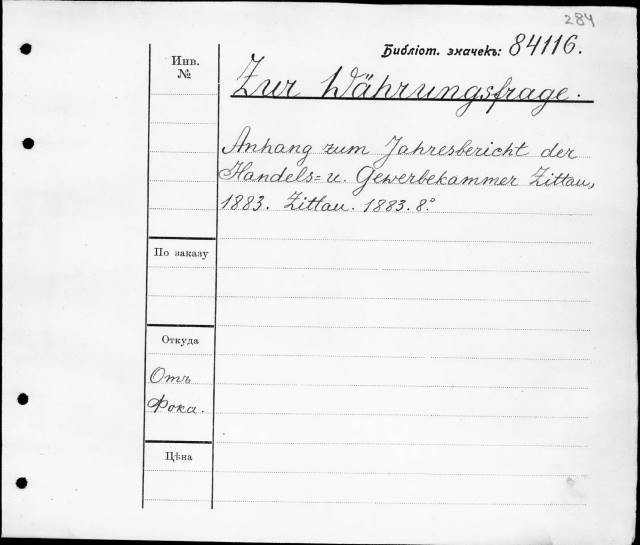 284
Библіот. значекъ: 84116.
Инв.
№
Zur Währungsfrage.
Anhang zum Jahresbericht der
Handels= u. Gewerbekammer Zittau,
1883. Zittau. 1883. 8.°
По заказу
Откуда
Отъ
Фока.
Цѣна